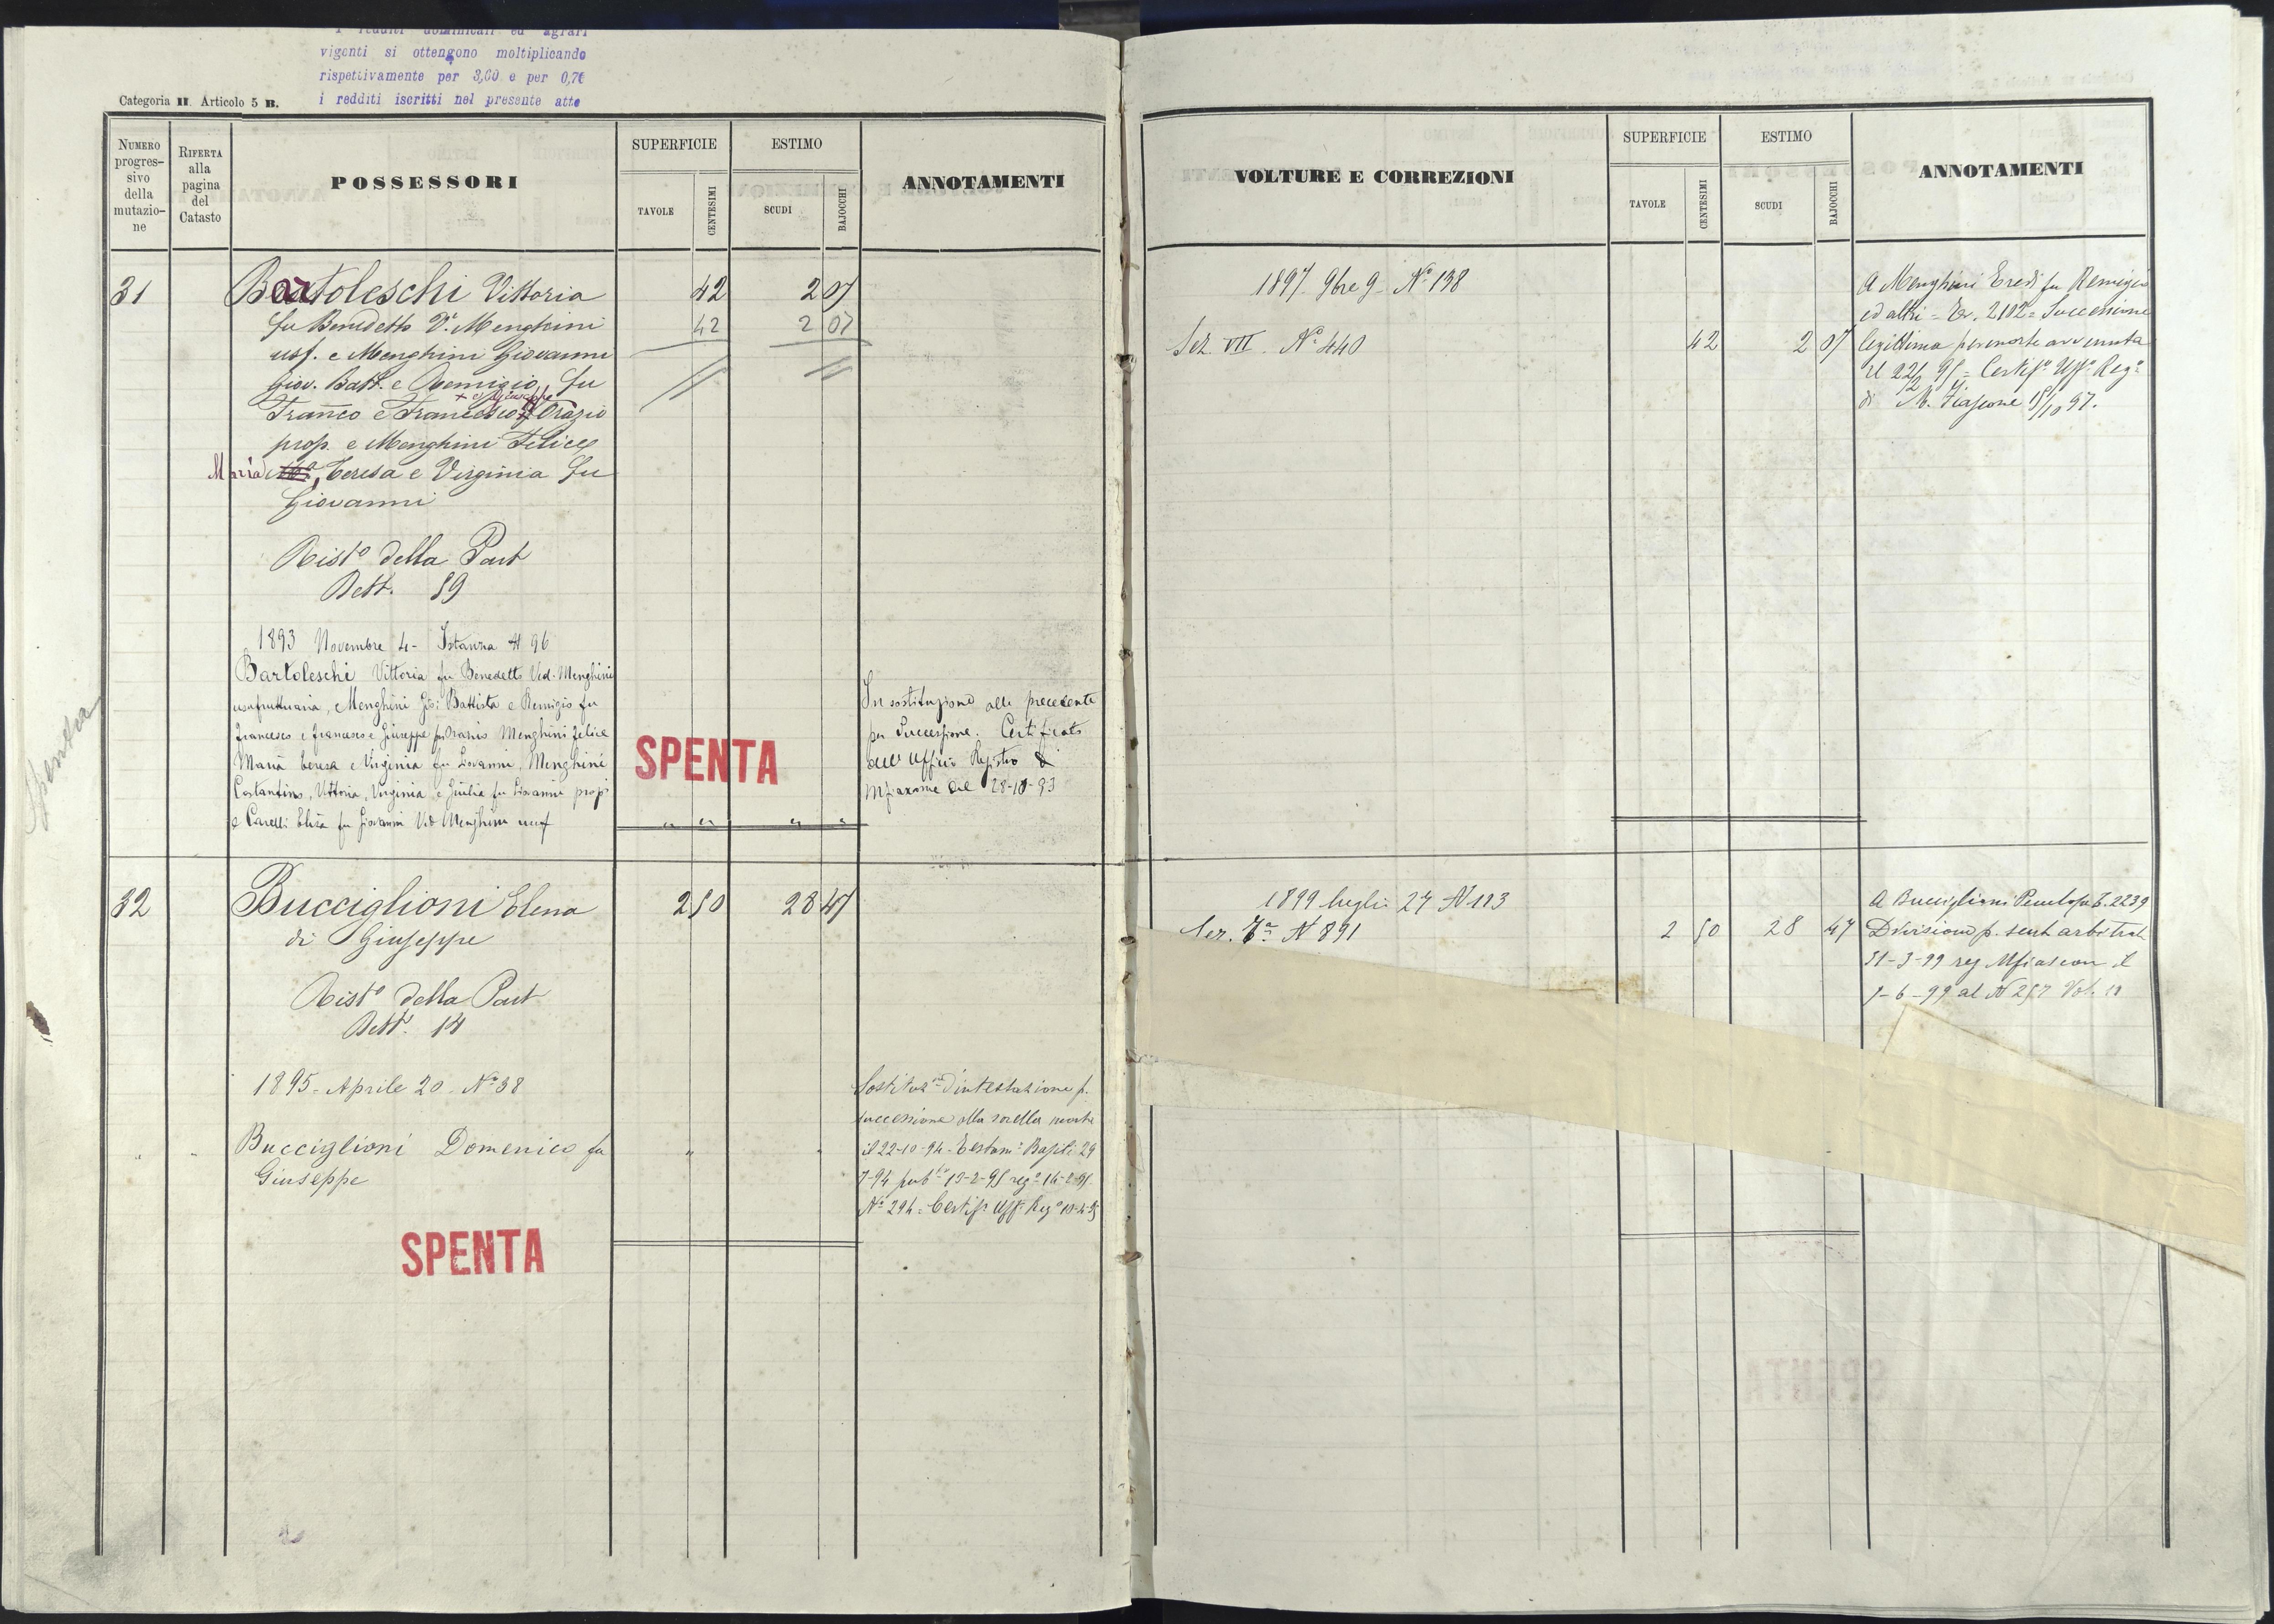 I redditi dominicali ed agrari
vigenti si ottengono moltiplicando
rispettivamente per 3,00 e per 0,70
i redditi iscritti nel presente atto
Categoria II Articolo 5 B.
NUMERO progres- sivo della mutazio- ne
RIFERTA alla pagina del Catasto
POSSESSORI
SUPERFICIE
TAVOLE
CENTESIMI
ESTIMO
SCUDI
BAJOCCHI
ANNOTAMENTI
31 Bartoleschi Vittoria 42 2 07
fu Benedetto Va Menghini 42 2 07
usf. e Menghini Giovanni
Giov. Batt. e Remigio fu
+ e Giuseppe
Franco e Francesco fu Orazio
prop. e Menghini Felice
Maria, Teresa e Virginia fu
Giovanni
Risto della Part
Rett. 59
1893 Novembre 4 - Istanza N 96
Bartoleschi Vittoria fu Benedetto Ved. Menghini
usufruttuaria, Menghini Gio: Battista e Remigio fu
Francesco e Francesco e Giuseppe fu Orazio Menghini Felice
Maria Teresa e Virginia fu Giovanni, Menghini
Costantino, Vittoria, Virginia e Giulia fu Giovanni propi
e Carelli Elisa fu Giovanni Ved Menghini usuf
In sostituzione alla precedente
per Successione. Certificato
dell'Ufficio Registro di
Mfiascone del 28-10-93
SPENTA
Spenta
32 Bucciglioni Elena 2 50 28 47
di Giuseppe
Risto della Part
Rett. 14
1895 - Aprile 20 - No 38
Bucciglioni Domenico fu
Giuseppe
Sostituzne d'intestazione p.
successione alla sorella morta
il 22-10-94 - Testam.
No 294 = Certifo Uffo Rego
SPENTA
VOLTURE E CORREZIONI
SUPERFICIE
TAVOLE
CENTESIMI
ESTIMO
SCUDI
BAJOCCHI
ANNOTAMENTI
1897 9bre 9 - No 138
Sez. VII. No 440 42 2 07
A Menghini Eredi fu Remigio
ed altri = Tr. 2102 = Successione
legittima per morte avvenuta
il 22/2 95 = Certifo Uffo Rego
di M. Fiascone 15/10 97.
1899 luglio 27 N 113
Sez. 7a N 891 2 50 28 47
A Bucciglioni Penelope T. 2239
Divisione p. sent arbitrat
31-3-99 reg Mfiascon il
7-6-99 al N 257 Vol. 11